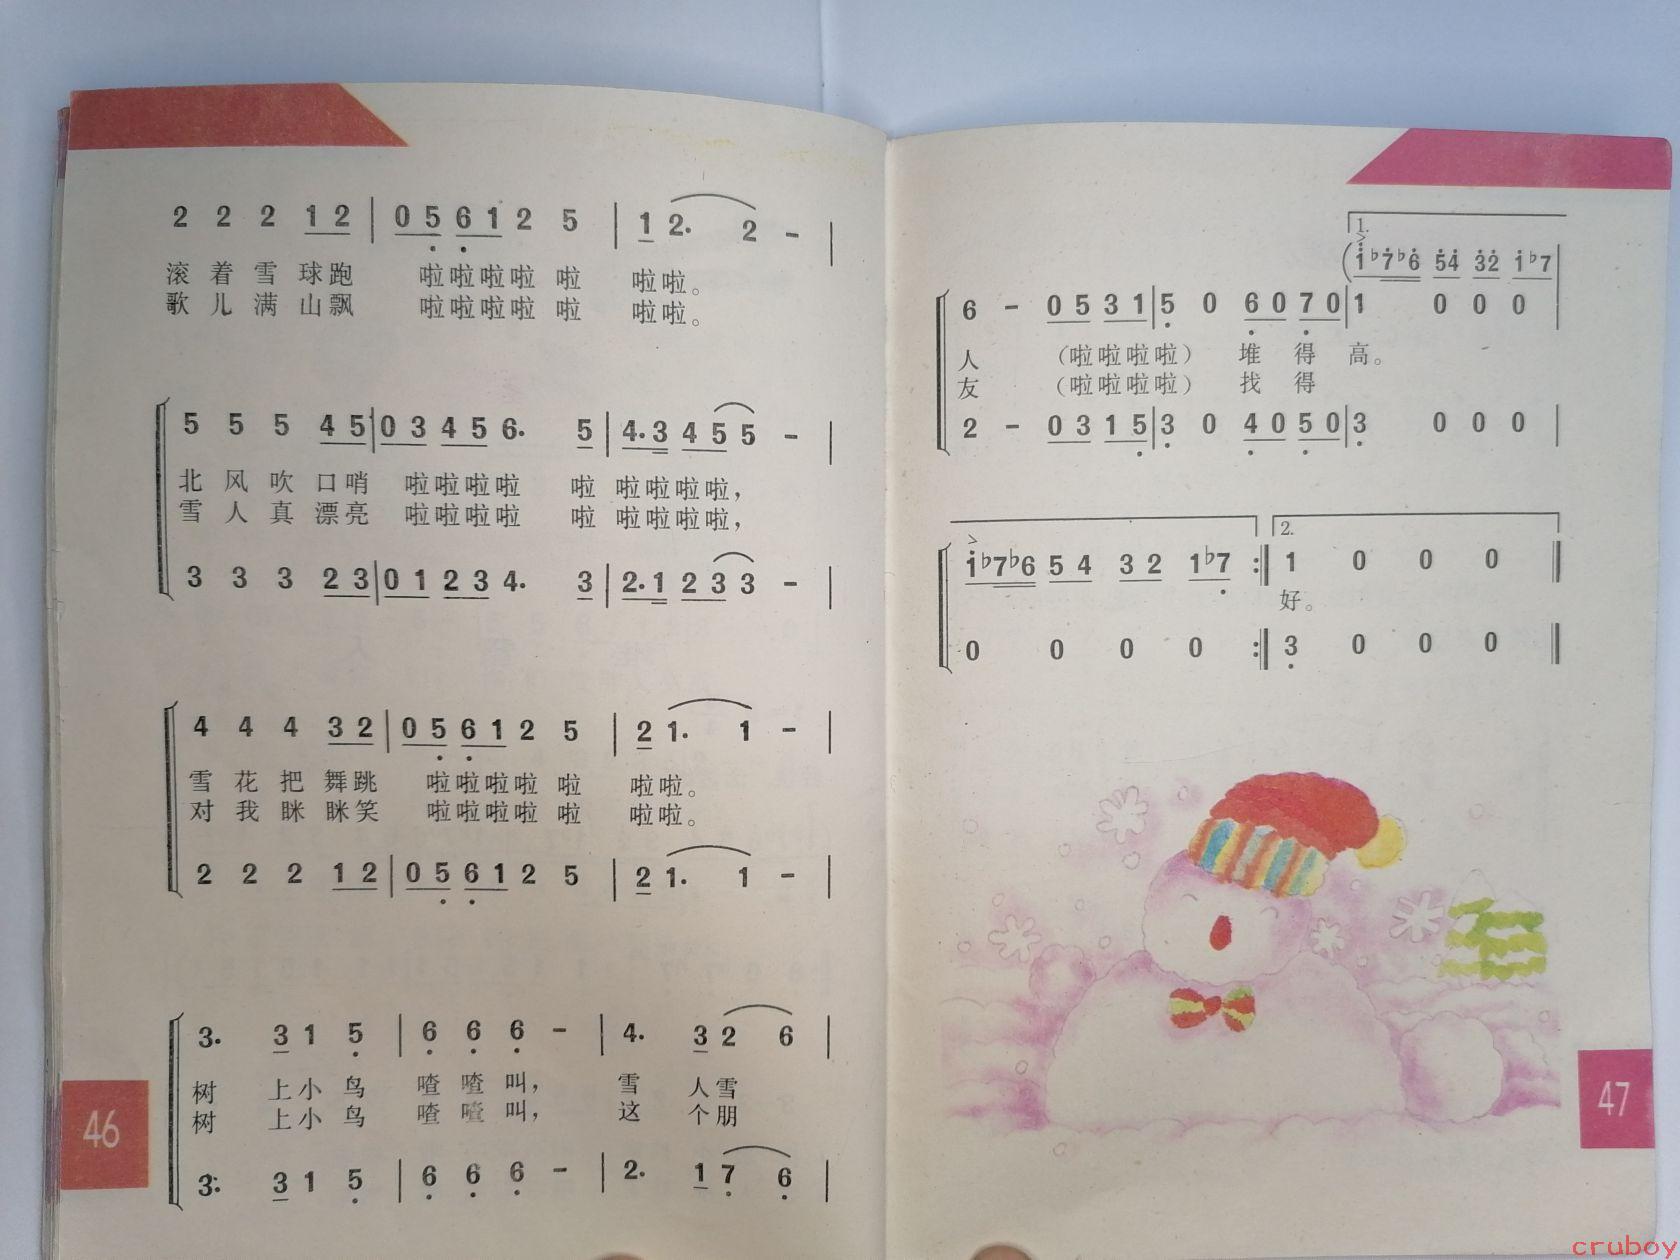 2 2 2 1 2 | 0 5 6 1 2 5 | 1 2. 2 - |
滚着雪球跑 啦啦啦啦 啦 啦啦。
歌儿满山飘 啦啦啦啦 啦 啦啦。
5 5 5 4 5 | 0 3 4 5 6. 5 | 4. 3 4 5 5 - |
北风吹口哨 啦啦啦啦 啦 啦啦啦啦，
雪人真漂亮 啦啦啦啦 啦 啦啦啦啦，
3 3 3 2 3 | 0 1 2 3 4. 3 | 2. 1 2 3 3 - |
4 4 4 3 2 | 0 5 6 1 2 5 | 2 1. 1 - |
雪花把舞跳 啦啦啦啦 啦 啦啦。
对我眯眯笑 啦啦啦啦 啦 啦啦。
2 2 2 1 2 | 0 5 6 1 2 5 | 2 1. 1 - |
3. 3 1 5 | 6 6 6 - | 4. 3 2 6 |
树 上小鸟 喳喳叫， 雪 人雪
树 上小鸟 喳喳叫， 这 个朋
3. 3 1 5 | 6 6 6 - | 2. 1 7 6 |
46
1.
(1 ♭7 ♭6 5 4 3 2 1 ♭7
6 - 0 5 3 1 | 5 0 6 0 7 0 | 1 0 0 0 |
人 （啦啦啦啦） 堆 得 高。
友 （啦啦啦啦） 找 得
2 - 0 3 1 5 | 3 0 4 0 5 0 | 3 0 0 0 |
2.
1 ♭7 ♭6 5 4 3 2 1 ♭7 :‖ 1 0 0 0 ‖
好。
0 0 0 0 :‖ 3 0 0 0 ‖
47
cruboy